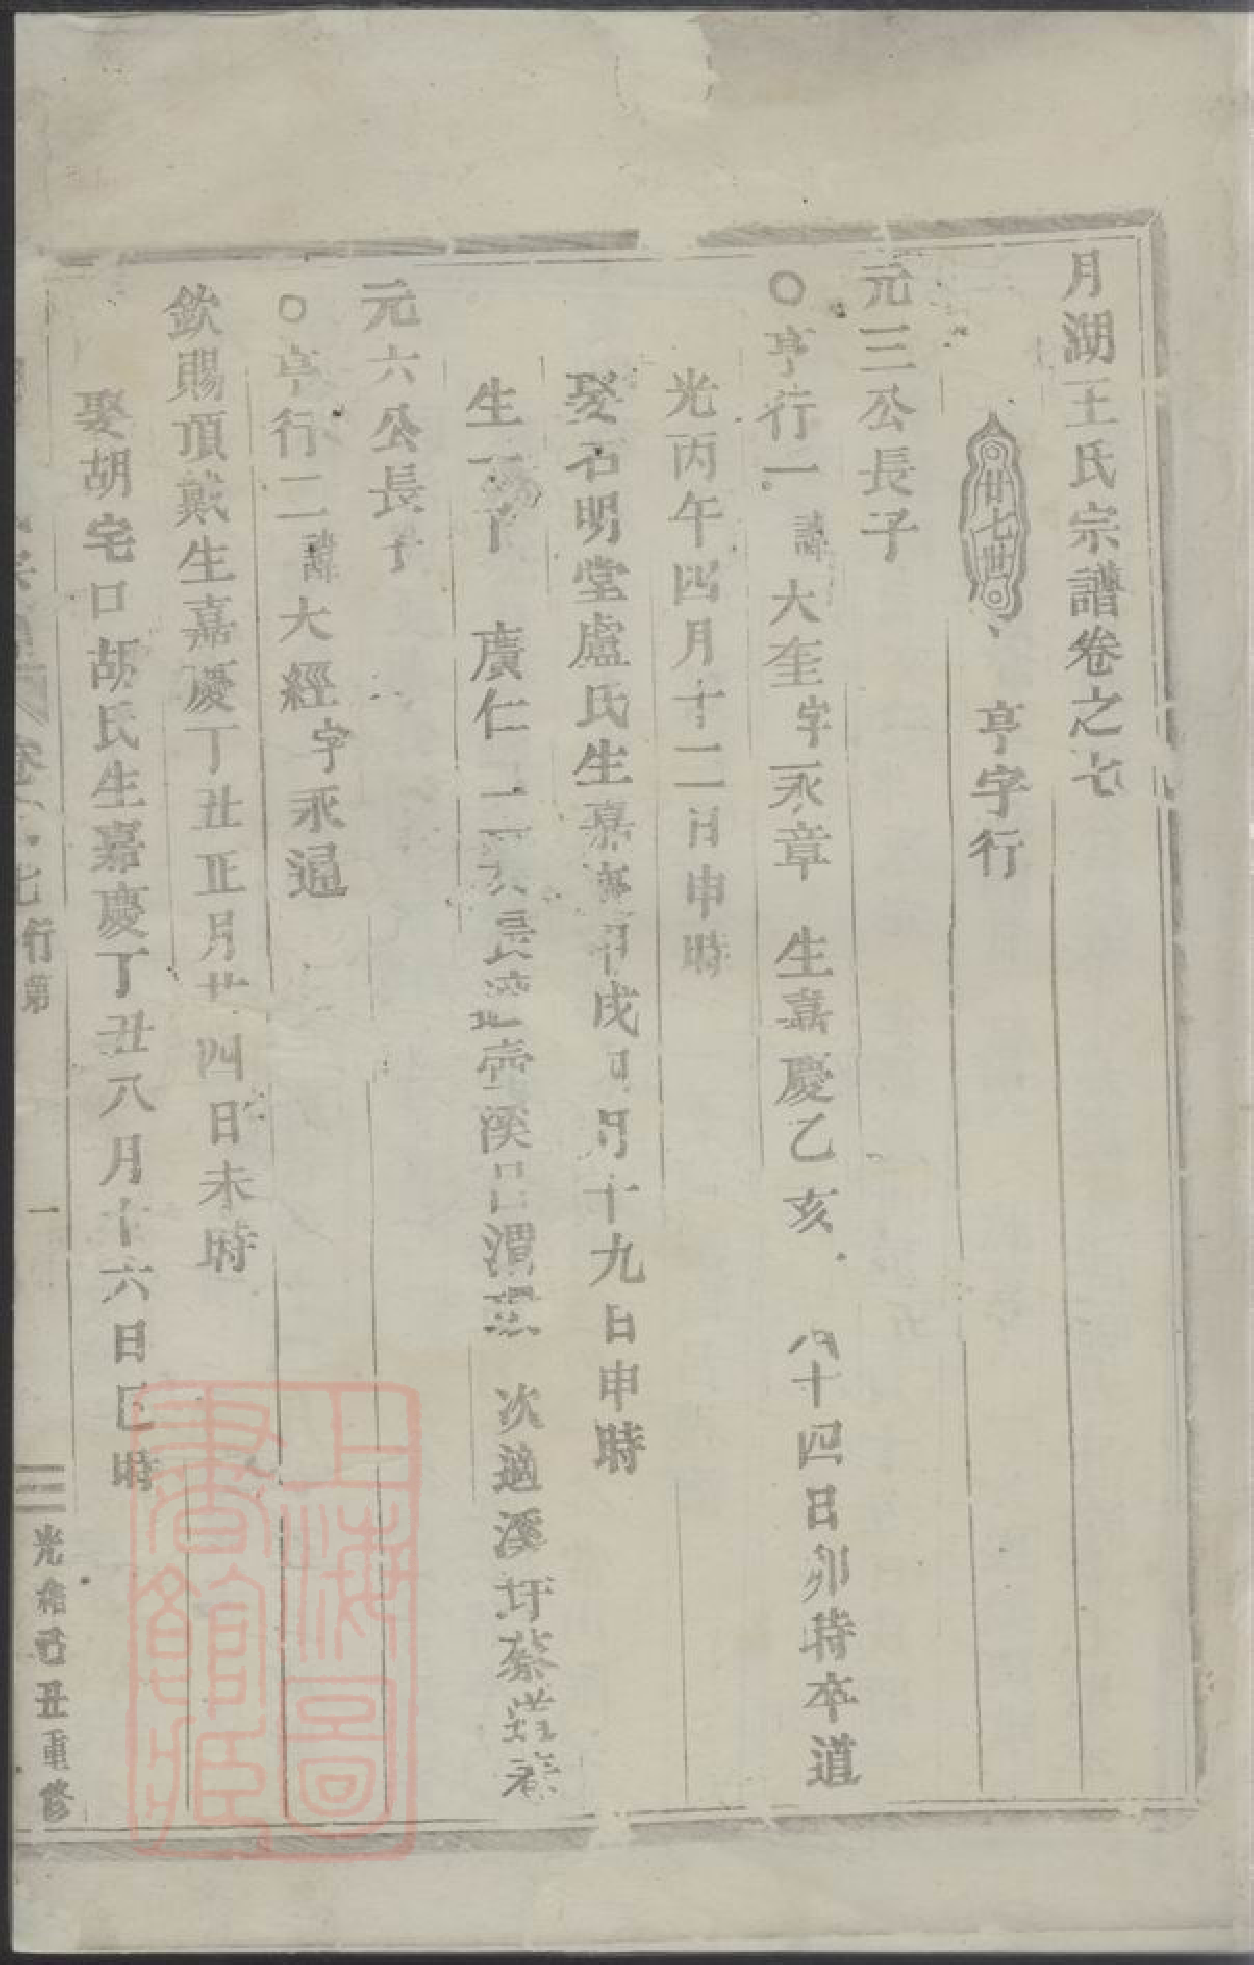 月湖王氏宗譜卷之七
廿七世 亨字行
元三公長子
○亨行一諱大奎字承章 生嘉慶乙亥 八十四日卯時卒道
光丙午四月十二日申時
娶石明堂盧氏生嘉慶戌 月十九日申時
生一 廣仁 二 長適壺溪呂渭 次適溪圩蔡
元六公長子
○亨行二諱大經字承逼
欽賜頂戴生嘉慶丁丑正月廿四日未時
娶胡宅口胡氏生嘉慶丁丑八月十六日巳時
卷之七 行第 一 光緒己丑重修
上海圖書館藏